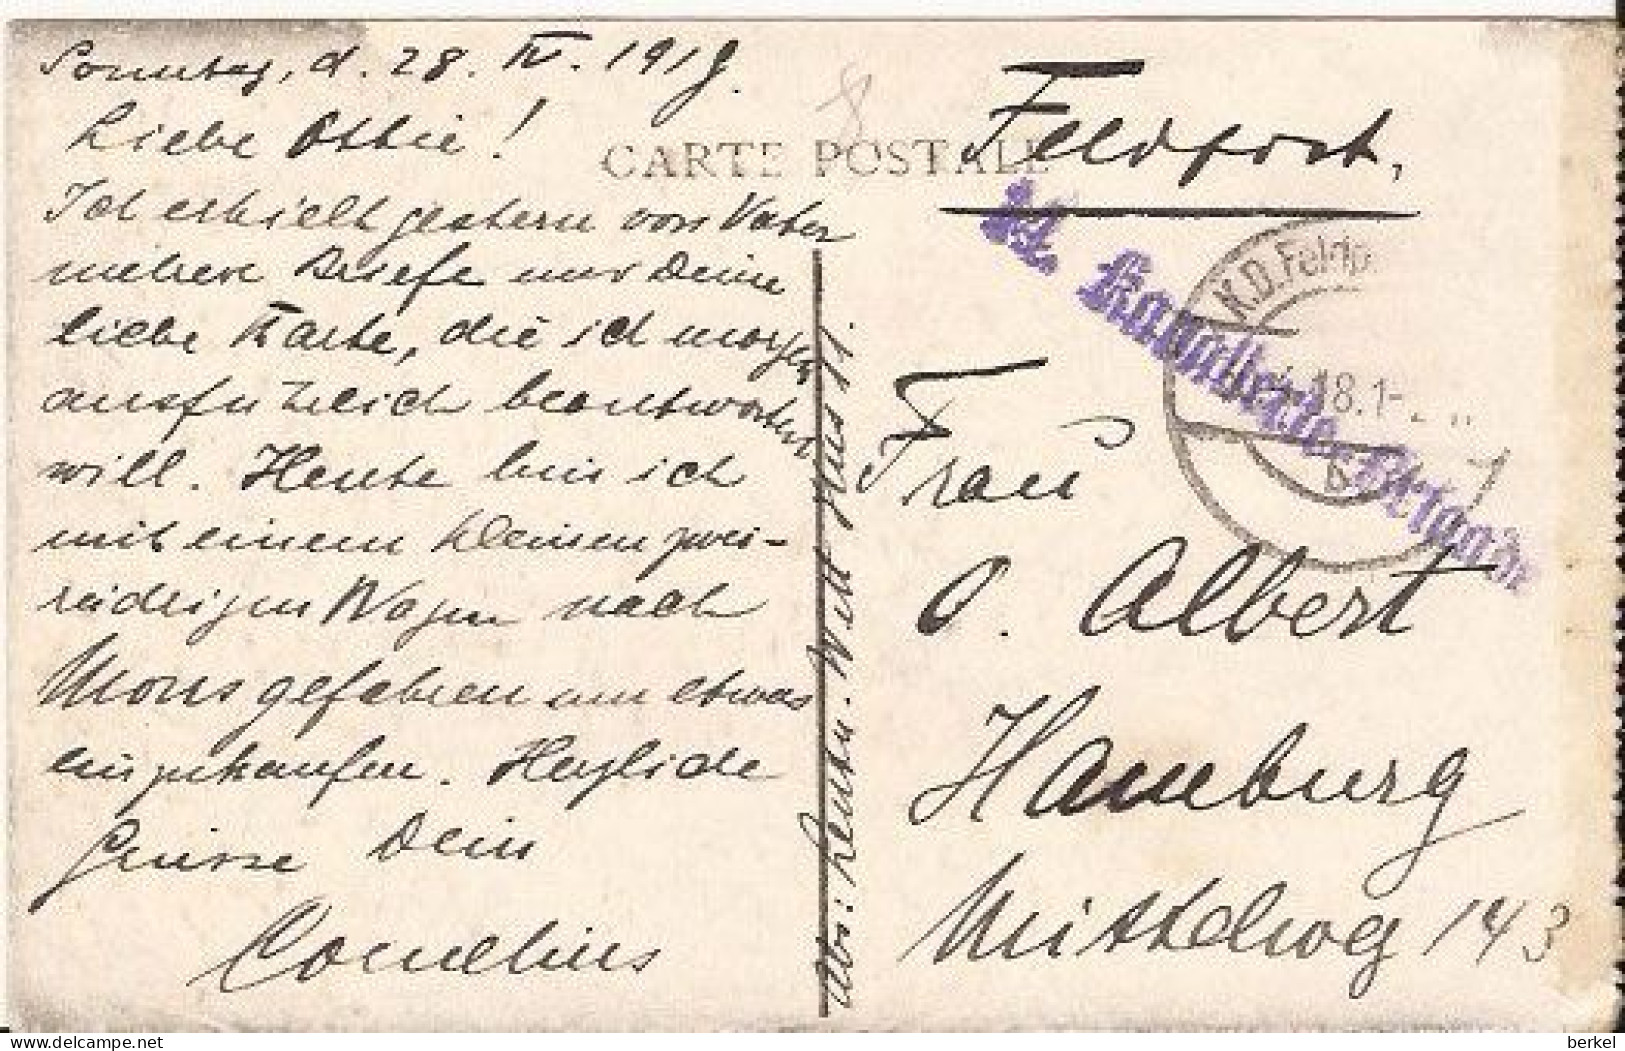 Sonntag, d. 28. IV. 1918.
Liebe Ottie!
Ich erhielt gestern von Vater
mehrere Briefe und Deine
liebe Karte, die ich morgen
ausführlich beantworten
will. Heute bin ich
mit einem kleinen zwei-
rädrigen Wagen nach
Mons gefahren um etwas
einzukaufen. Herzliche
Grüsse Dein
Cornelius
Abs: Leutn. Witt
CARTE POSTALE
8
Feldpost,
Kavallerie-Brigade
K.D. Feldp.
18.1-2
b
Frau
O. Albert
Hamburg
Mittelweg 143
berkel